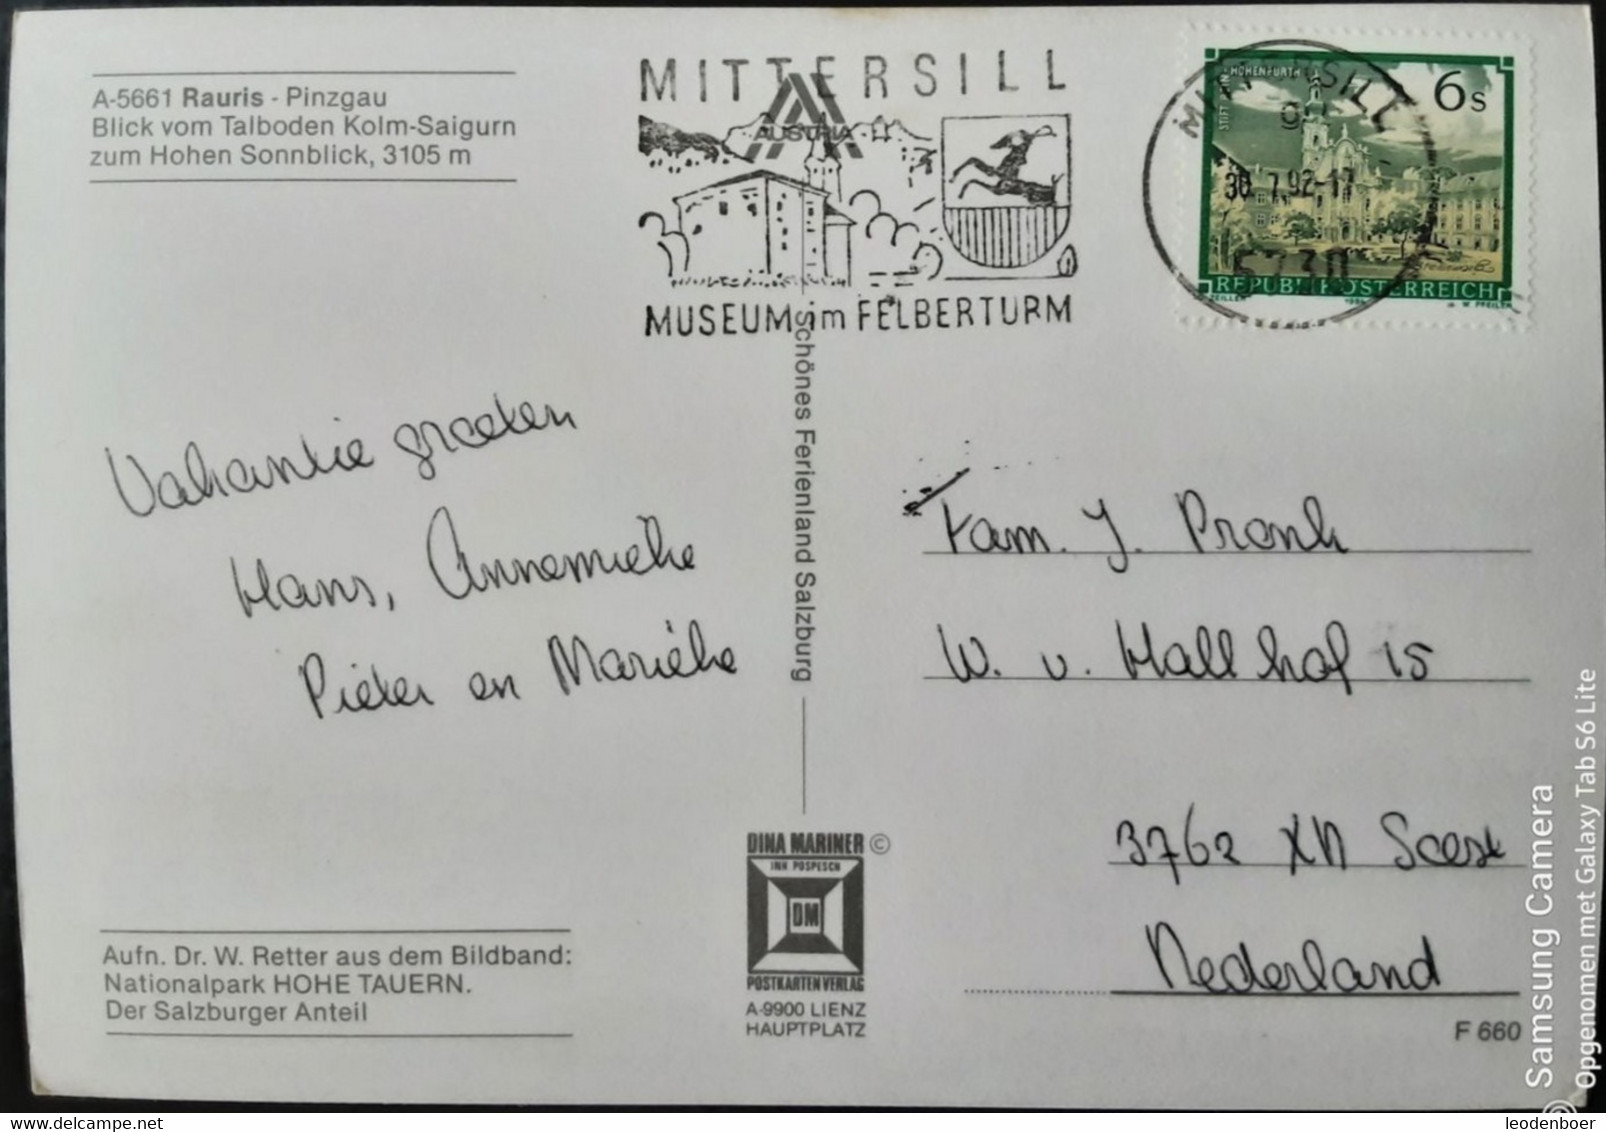 A-5661 Rauris - Pinzgau
Blick vom Talboden Kolm-Saigurn
zum Hohen Sonnblick, 3105 m
MITTERSILL
AUSTRIA
MUSEUM im FELBERTURM
MITTERSILL
30.7.92-17
5730
STIFT HOHENFURTH
6s
REPUBLIK ÖSTERREICH
ZEILLER
W. PFEILER
Vakantie groeten
Hans, Annemieke
Pieter en Mariëke
Schönes Ferienland Salzburg
Fam. J. Pronk
W. v. Hallhof 15
3762 XN Soest
Nederland
DINA MARINER ©
INH POSPESCH
DM
POSTKARTENVERLAG
A-9900 LIENZ
HAUPTPLATZ
Aufn. Dr. W. Retter aus dem Bildband:
Nationalpark HOHE TAUERN.
Der Salzburger Anteil
F 660
Samsung Camera
Opgenomen met Galaxy Tab S6 Lite
www.delcampe.net
leodenboer